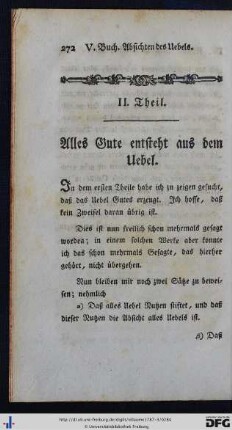 272 V. Buch. Absichten des Uebels.
II. Theil.
Alles Gute entsteht aus dem
Uebel.
In dem ersten Theile habe ich zu zeigen gesucht,
daß das Uebel Gutes erzeugt. Ich hoffe, daß
kein Zweifel daran übrig ist.
Dies ist nun freilich schon mehrmals gesagt
worden; in einem solchen Werke aber konnte
ich das schon mehrmals Gesagte, das hierher
gehört, nicht übergehen.
Nun bleiben mir noch zwei Sätze zu bewei-
sen; nehmlich
α) Daß alles Uebel Nutzen stiftet, und daß
dieser Nutzen die Absicht alles Uebels ist.
β) Daß
© Universitätsbibliothek Freiburg
DFG